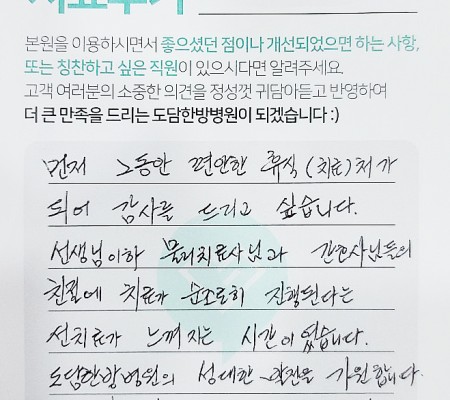 본원을 이용하시면서 좋으셨던 점이나 개선되었으면 하는 사항,
또는 칭찬하고 싶은 직원이 있으시다면 알려주세요.
고객 여러분의 소중한 의견을 정성껏 귀담아듣고 반영하여
더 큰 만족을 드리는 도담한방병원이 되겠습니다 :)
먼저 그동안 편안한 휴식(치료)처가
되어 감사를 드리고 싶습니다.
선생님이하 물리치료사님과 간호사님들의
친절에 치료가 순조로히 진행된다는
선치료가 느껴지는 시간이었습니다.
도담한방병원의 성대한 약진을 가원합니다.